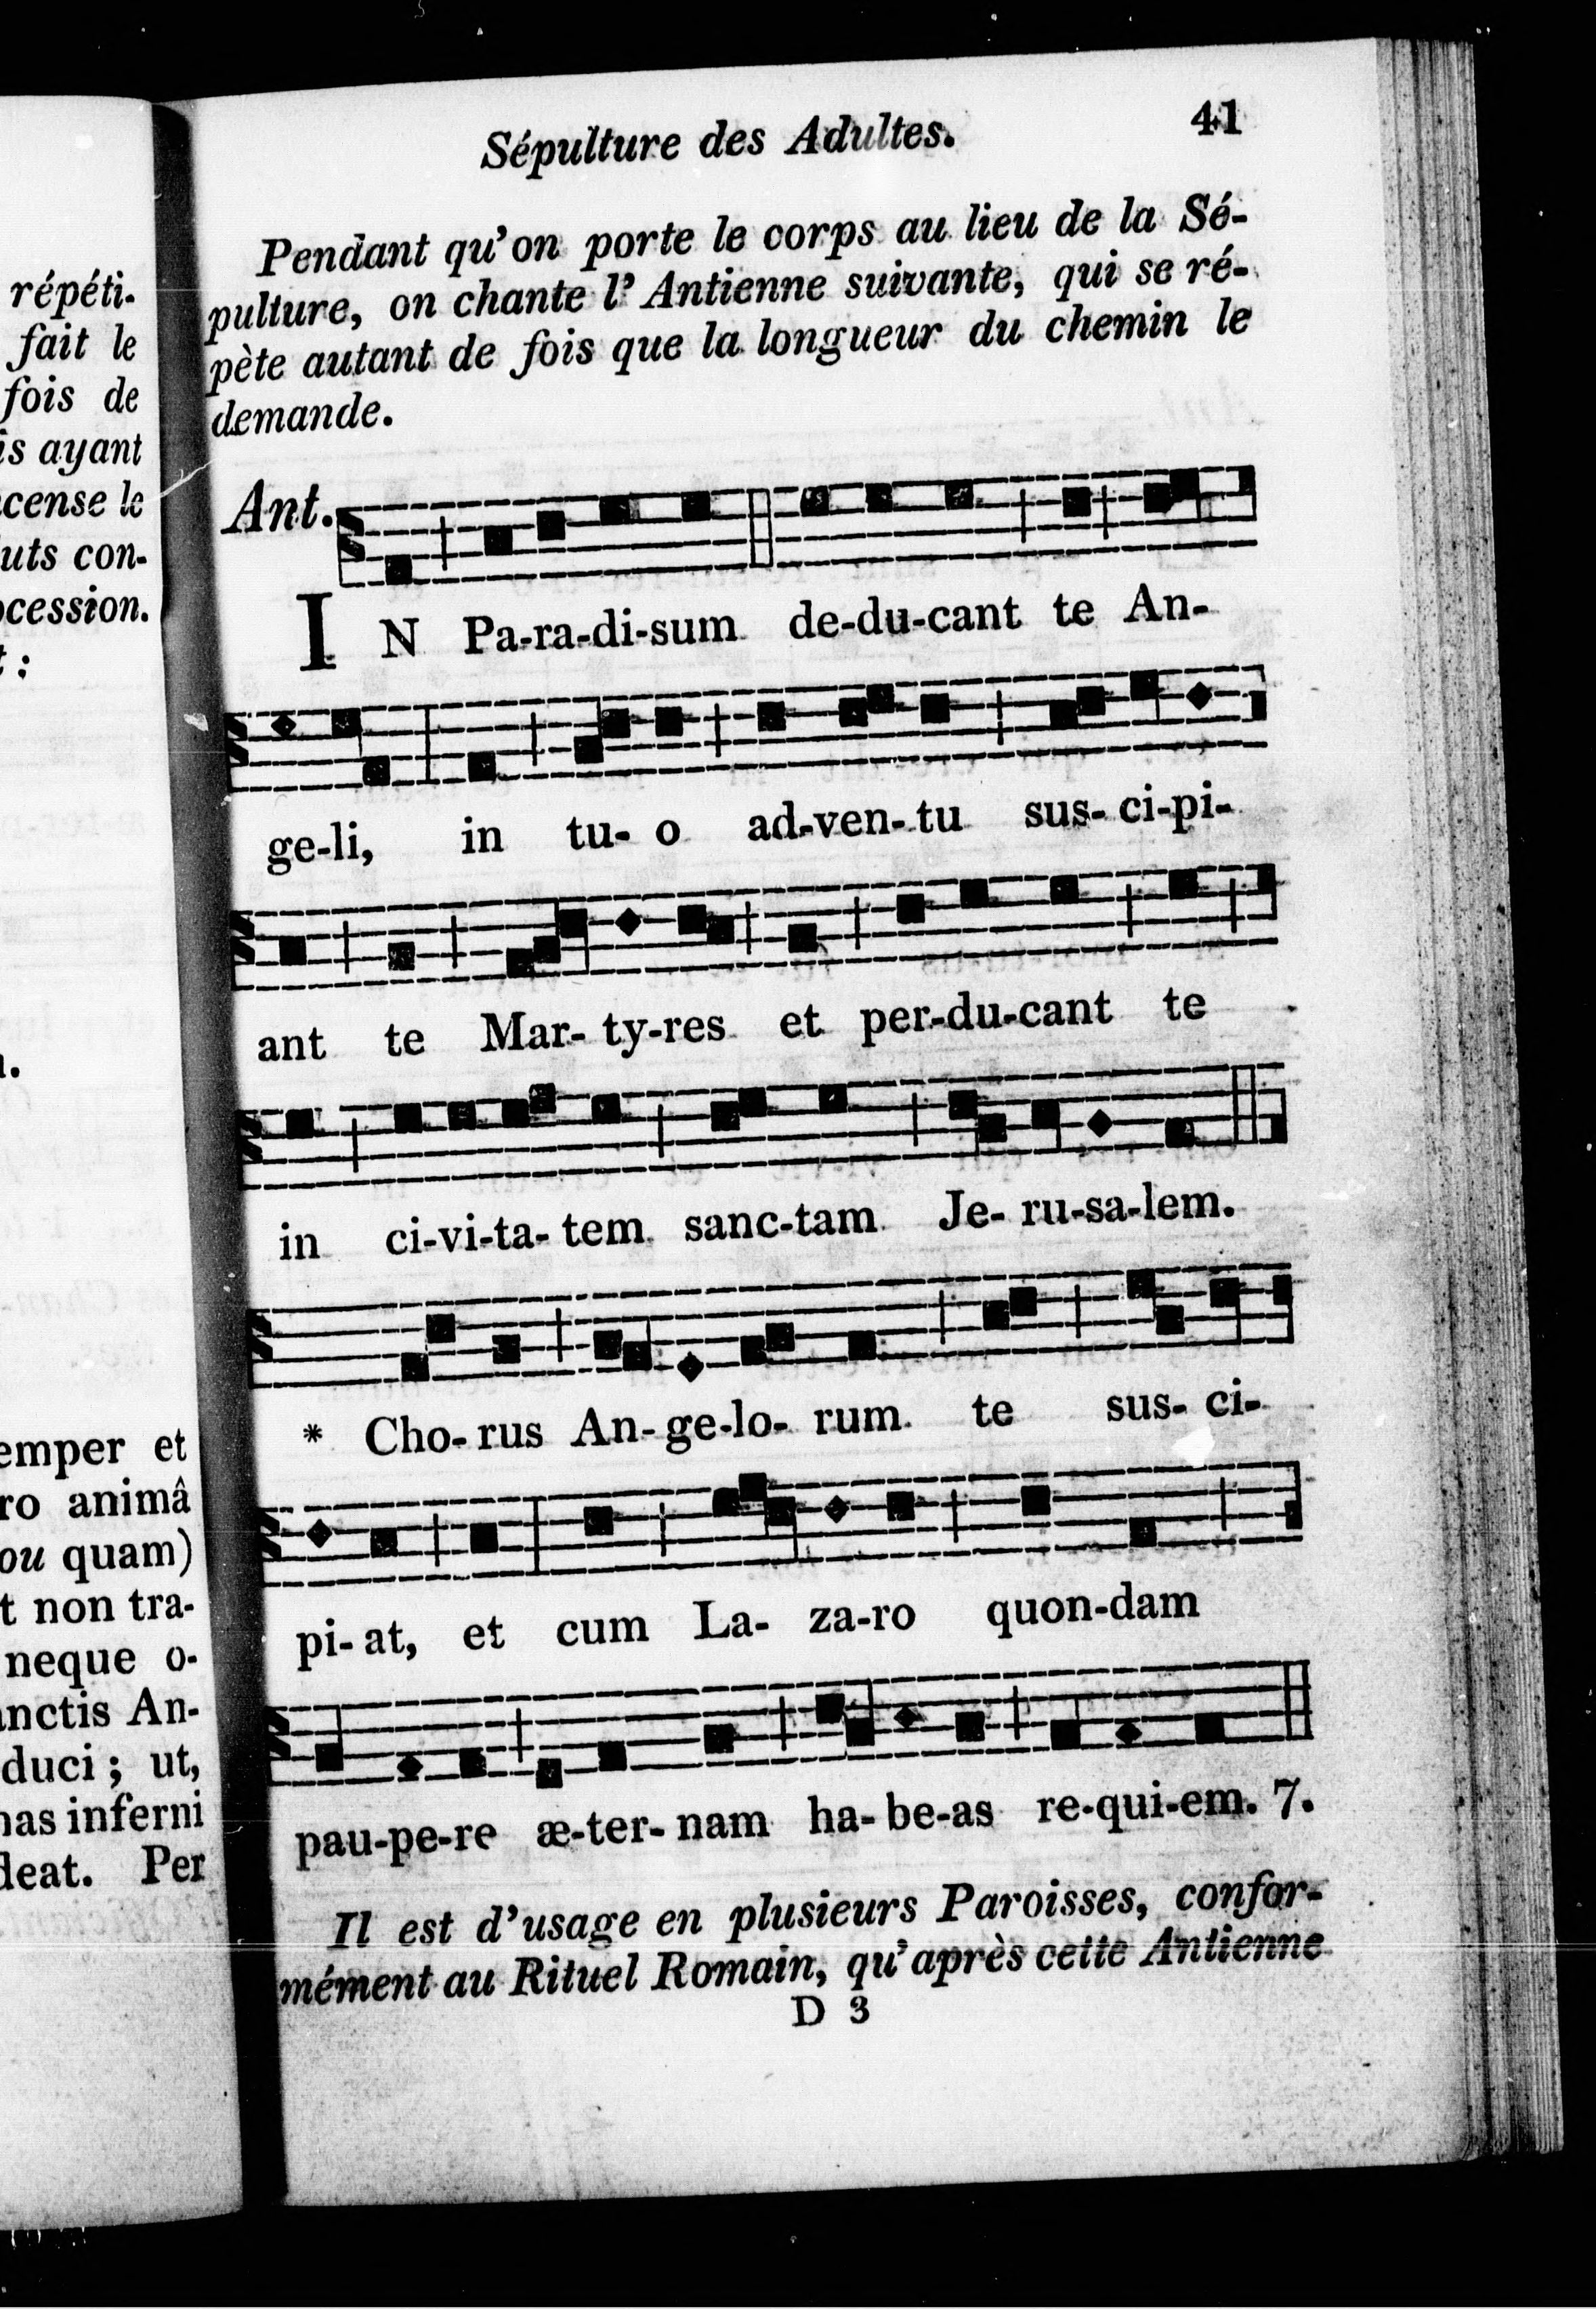 répéti-
fait le
fois de
is ayant
cense le
uts con-
cession.
emper et
ro animâ
ou quam)
t non tra-
neque o-
anctis An-
duci ; ut,
nas inferni
deat. Per
Sépulture des Adultes. 41
Pendant qu'on porte le corps au lieu de la Sé-
pulture, on chante l'Antienne suivante, qui se ré-
pète autant de fois que la longueur du chemin le
demande.
Ant.
IN Pa-ra-di-sum de-du-cant te An-
ge-li, in tu- o ad-ven-tu sus- ci-pi-
ant te Mar- ty-res et per-du-cant te
in ci-vi-ta- tem sanc-tam Je- ru-sa-lem.
* Cho- rus An- ge-lo- rum te sus- ci-
pi- at, et cum La- za-ro quon-dam
pau-pe-re æ-ter- nam ha- be-as re-qui-em. 7.
Il est d'usage en plusieurs Paroisses, confor-
mément au Rituel Romain, qu'après cette Antienne
D 3